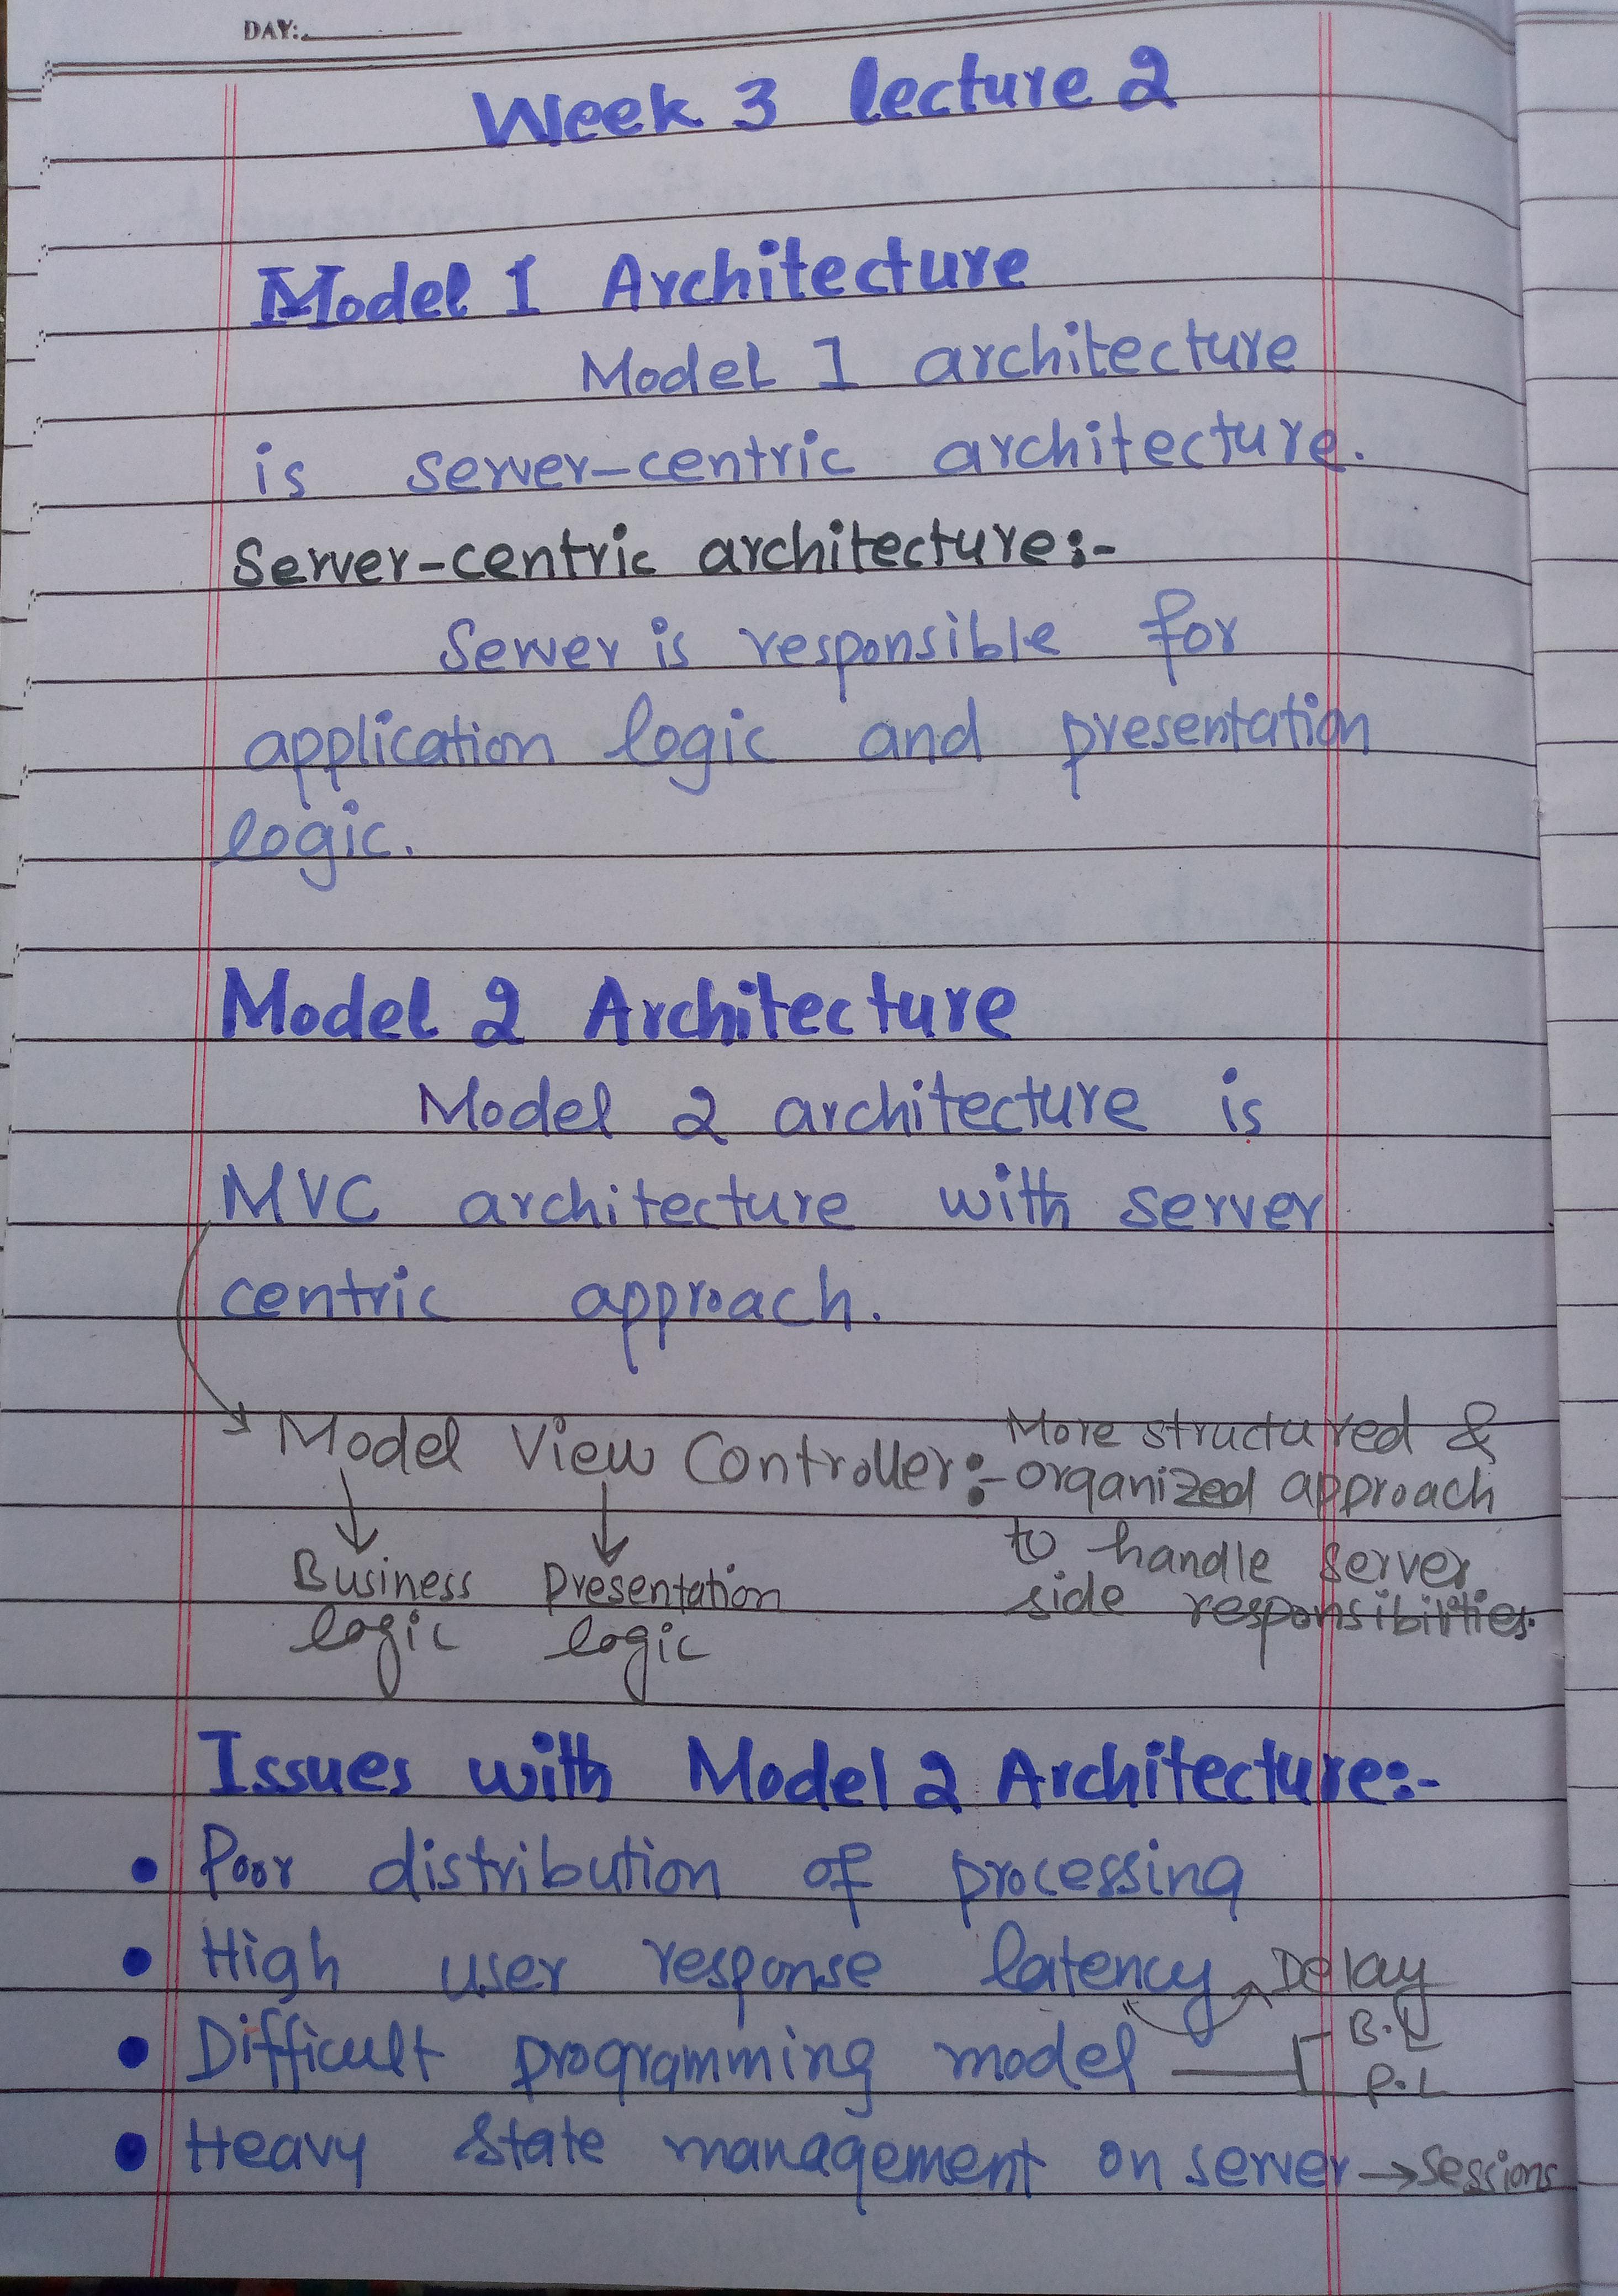 DAY:
Week 3 lecture 2
Model 1 Architecture
Model 1 architecture
is server-centric architecture.
Server-centric architecture:-
Server is responsible for
application logic and presentation
logic.
Model 2 Architecture
Model 2 architecture is
MVC architecture with server
centric approach.
Model View Controller:- More structured &
organized approach
to handle server
side responsibilities.
Business Presentation
logic logic
Issues with Model 2 Architecture:-
• Poor distribution of processing
• High user response latency → Delay
• Difficult programming model B.L
P.L
• Heavy state management on server → Sessions